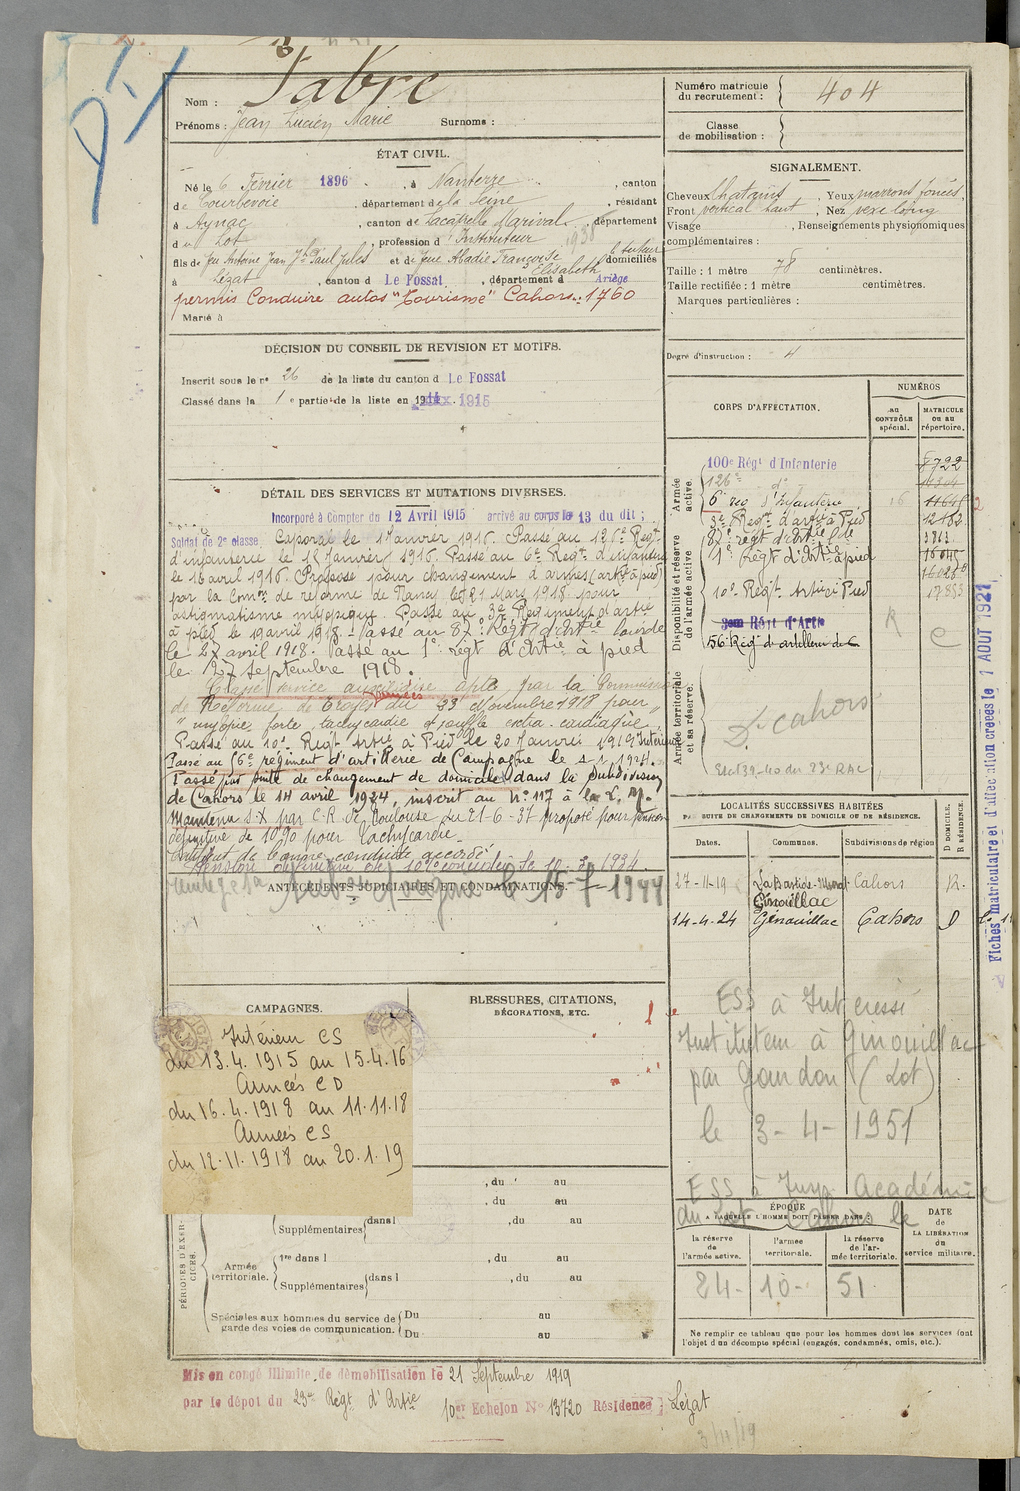 Nom : Fabre
Prénoms : Jean Lucien Marie Surnoms :
Numéro matricule du recrutement : 404
Classe de mobilisation :
ÉTAT CIVIL.
Né le 6 Février 1896, à Nanterre, canton
de Courbevoie, département de la Seine, résidant
à Aynac, canton de Lacapelle Marival, département
du Lot, profession d'Instituteur
fils de feu Antoine Jean Jh Paul Jules et de feue Abadie Françoise Elisabeth domiciliés
à Lézat, canton d Le Fossat, département d Ariège
permis Conduire autos "Tourisme" Cahors : 1760
Marié à
SIGNALEMENT.
Cheveux Chatains, Yeux marrons foncés,
Front vertical haut, Nez vexe long
Visage , Renseignements physionomiques
complémentaires :
Taille : 1 mètre 78 centimètres.
Taille rectifiée : 1 mètre centimètres.
Marques particulières :
Degré d'instruction : 4
DÉCISION DU CONSEIL DE REVISION ET MOTIFS.
Inscrit sous le n° 26 de la liste du canton d Le Fossat
Classé dans la 1e partie de la liste en 1915
CORPS D'AFFECTATION.
NUMÉROS
au CONTRÔLE spécial.
MATRICULE ou au répertoire.
Armée active.
100e Régt d'Infanterie 8722
126e do
6e reg d'Infanterie
3e Regt d'artie à Pied 12182
87e regt d'artie Lde
1e Régt d'Artie à pied
10e Régt Artie à Pied 17883
3em Régt d'Artie
56e Rég d'artillerie de C
Disponibilité et réserve de l'armée active.
R
C
Armée territoriale et sa réserve.
Dt Cahors
DÉTAIL DES SERVICES ET MUTATIONS DIVERSES.
Incorporé à Compter du 12 Avril 1915 arrivé au corps le 13 du dit ;
Soldat de 2e classe Caporal le 1 Janvier 1916. Passé au 126e Regt
d'infanterie le 15 Janvier 1916. Passé au 6e Regt d'infanterie
le 16 avril 1916. Proposé pour changement d'armes (artie à pied)
par la Comon de reforme de Nancy le 21 Mars 1918 pour
astigmatisme myopique. Passé au 3e Régiment d'artie
à pied le 19 avril 1918. Passé au 87e Regt d'Artie lourde
le 27 avril 1918. Passé au 1e regt d'Artie à pied
le 27 septembre 1918.
Classé service auxiliaire apte par la Commission
de Réforme de Troyes du 23 Novembre 1918 pour
" myopie forte tachycardie et souffle extra-cardiaque "
Passé au 10e Regt Artie à Pied le 20 Janvier 1919 Intérieur
Passé au 16e régiment d'artillerie de Campagne le 1-1-1924.
Passé par suite de changement de domicile dans la subdivision
de Cahors le 14 avril 1924, inscrit au N° 117 à la L. M.
Maintenu S.X par C.R. de Toulouse du 21-6-37 proposé pour pension
définitive de 10% pour Tachycardie
ANTÉCÉDENTS JUDICIAIRES ET CONDAMNATIONS.
15-7-1944
LOCALITÉS SUCCESSIVES HABITÉES
PAR SUITE DE CHANGEMENTS DE DOMICILE OU DE RÉSIDENCE.
Dates. Communes. Subdivisions de région D DOMICILE. R RÉSIDENCE.
27-11-19 Labastide-Murat Cahors R.
Ginouillac
14-4-24 Ginouillac Cahors D
ESS à Intéressé
Instituteur à Ginouillac
par Gourdon (Lot)
le 3-4-1951
ESS à Insp. Académie
du Lot Cahors le
24-10-51
CAMPAGNES.
Intérieur CS
du 13.4.1915 au 15.4.16
Armées CD
du 16.4.1918 au 11.11.18
Armées CS
du 12.11.1918 au 20.1.19
BLESSURES, CITATIONS,
DÉCORATIONS, ETC.
, du au
, du au
PÉRIODES D'EXERCICES.
Supplémentaires dans l , du au
Armée territoriale.
1re dans l , du au
Supplémentaires dans l , du au
Spéciales aux hommes du service de garde des voies de communication.
Du au
Du au
ÉPOQUE
A LAQUELLE L'HOMME DOIT PASSER DANS :
la réserve de l'armée active.
l'armée territoriale.
la réserve de l'armée territoriale.
DATE de LA LIBÉRATION du service militaire.
Ne remplir ce tableau que pour les hommes dont les services font
l'objet d'un décompte spécial (engagés, condamnés, omis, etc.).
Fiches matriculaire et d'affectation créées le 1 AOUT 1921
Mis en congé illimité de démobilisation le 21 Septembre 1919
par le dépot du 23e Régt d'Artie 10e Echelon N° 13720 Résidence : Lézat
3/11/19